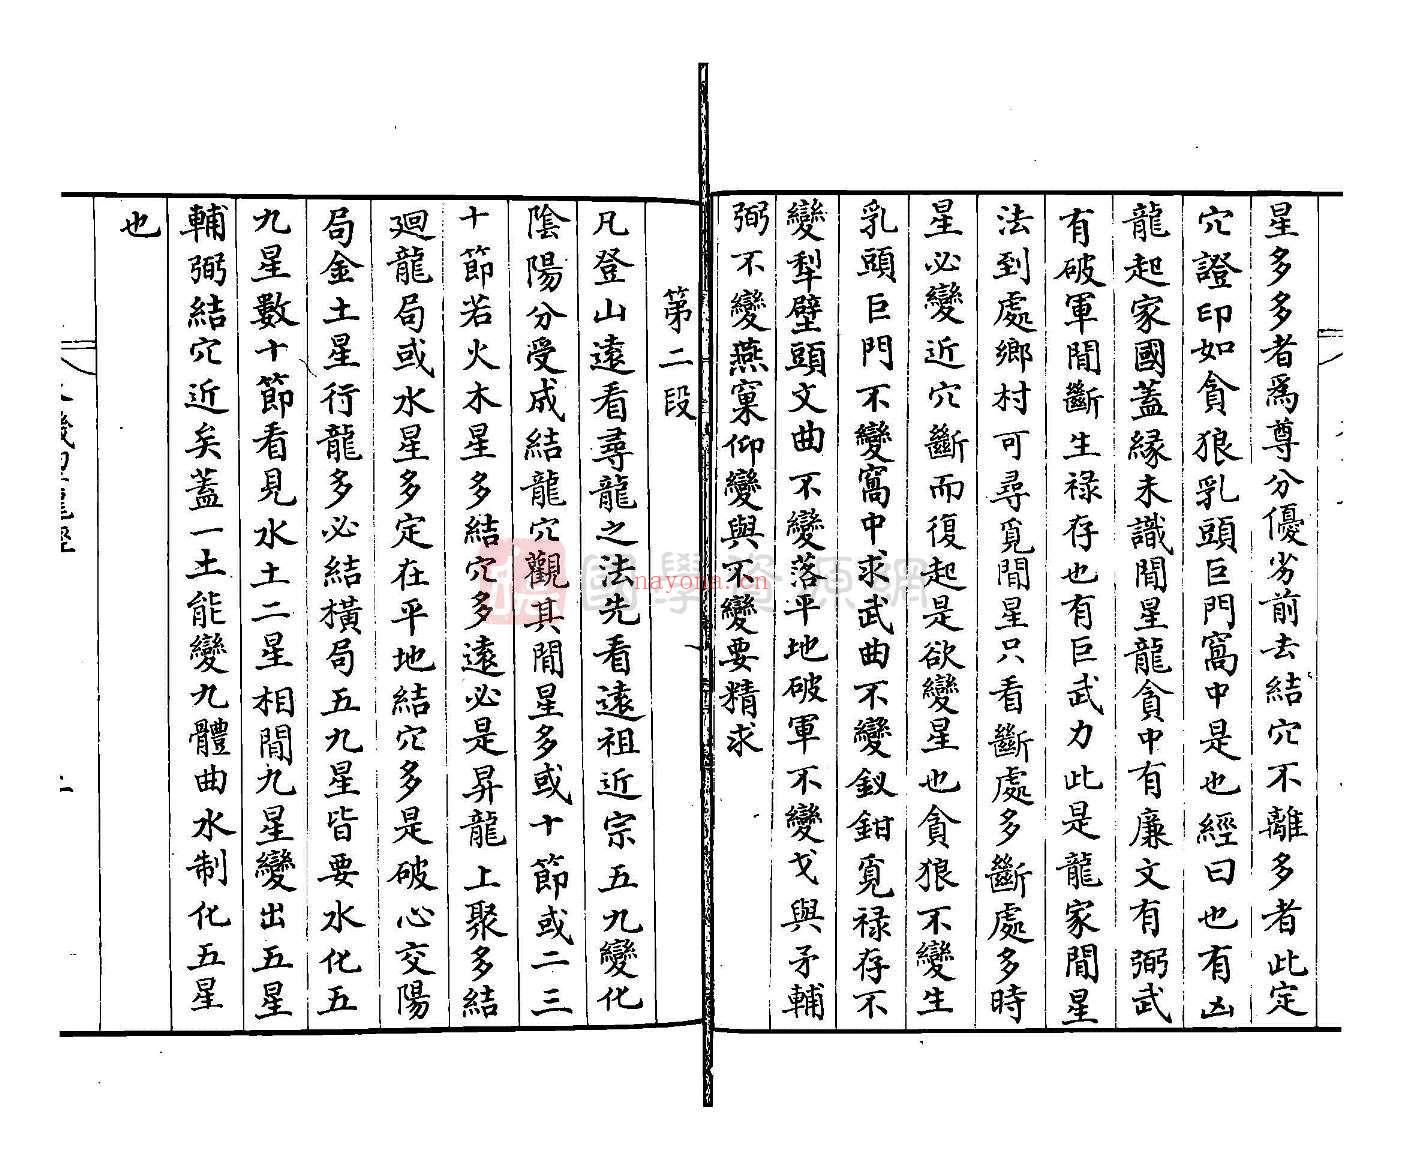 星多多者為尊分優劣前去結穴不離多者此定
穴證印如貪狼乳頭巨門窩中是也經曰也有凶
龍起家國蓋緣未識間星龍貪中有廉文有弼武
有破軍間斷生祿存也有巨武力此是龍家間星
法到處鄉村可尋覓間星只看斷處多斷處多時
星必變近穴斷而復起是欲變星也貪狼不變生
乳頭巨門不變窩中求武曲不變釵鉗覓祿存不
變犁壁頭文曲不變落平地破軍不變戈與矛輔
弼不變燕窠仰變與不變要精求
第二段
凡登山遠看尋龍之法先看遠祖近宗五九變化
陰陽分受成結龍穴觀其間星多或十節或二三
十節若火木星多結穴多遠必是昇龍上聚多結
廻龍局或水星多定在平地結穴多是破心交陽
局金土星行龍多必結橫局五九星皆要水化五
九星數十節看見水土二星相間九星變出五星
輔弼結穴近矣蓋一土能變九體曲水制化五星
也
國學資源網
nayona.cn